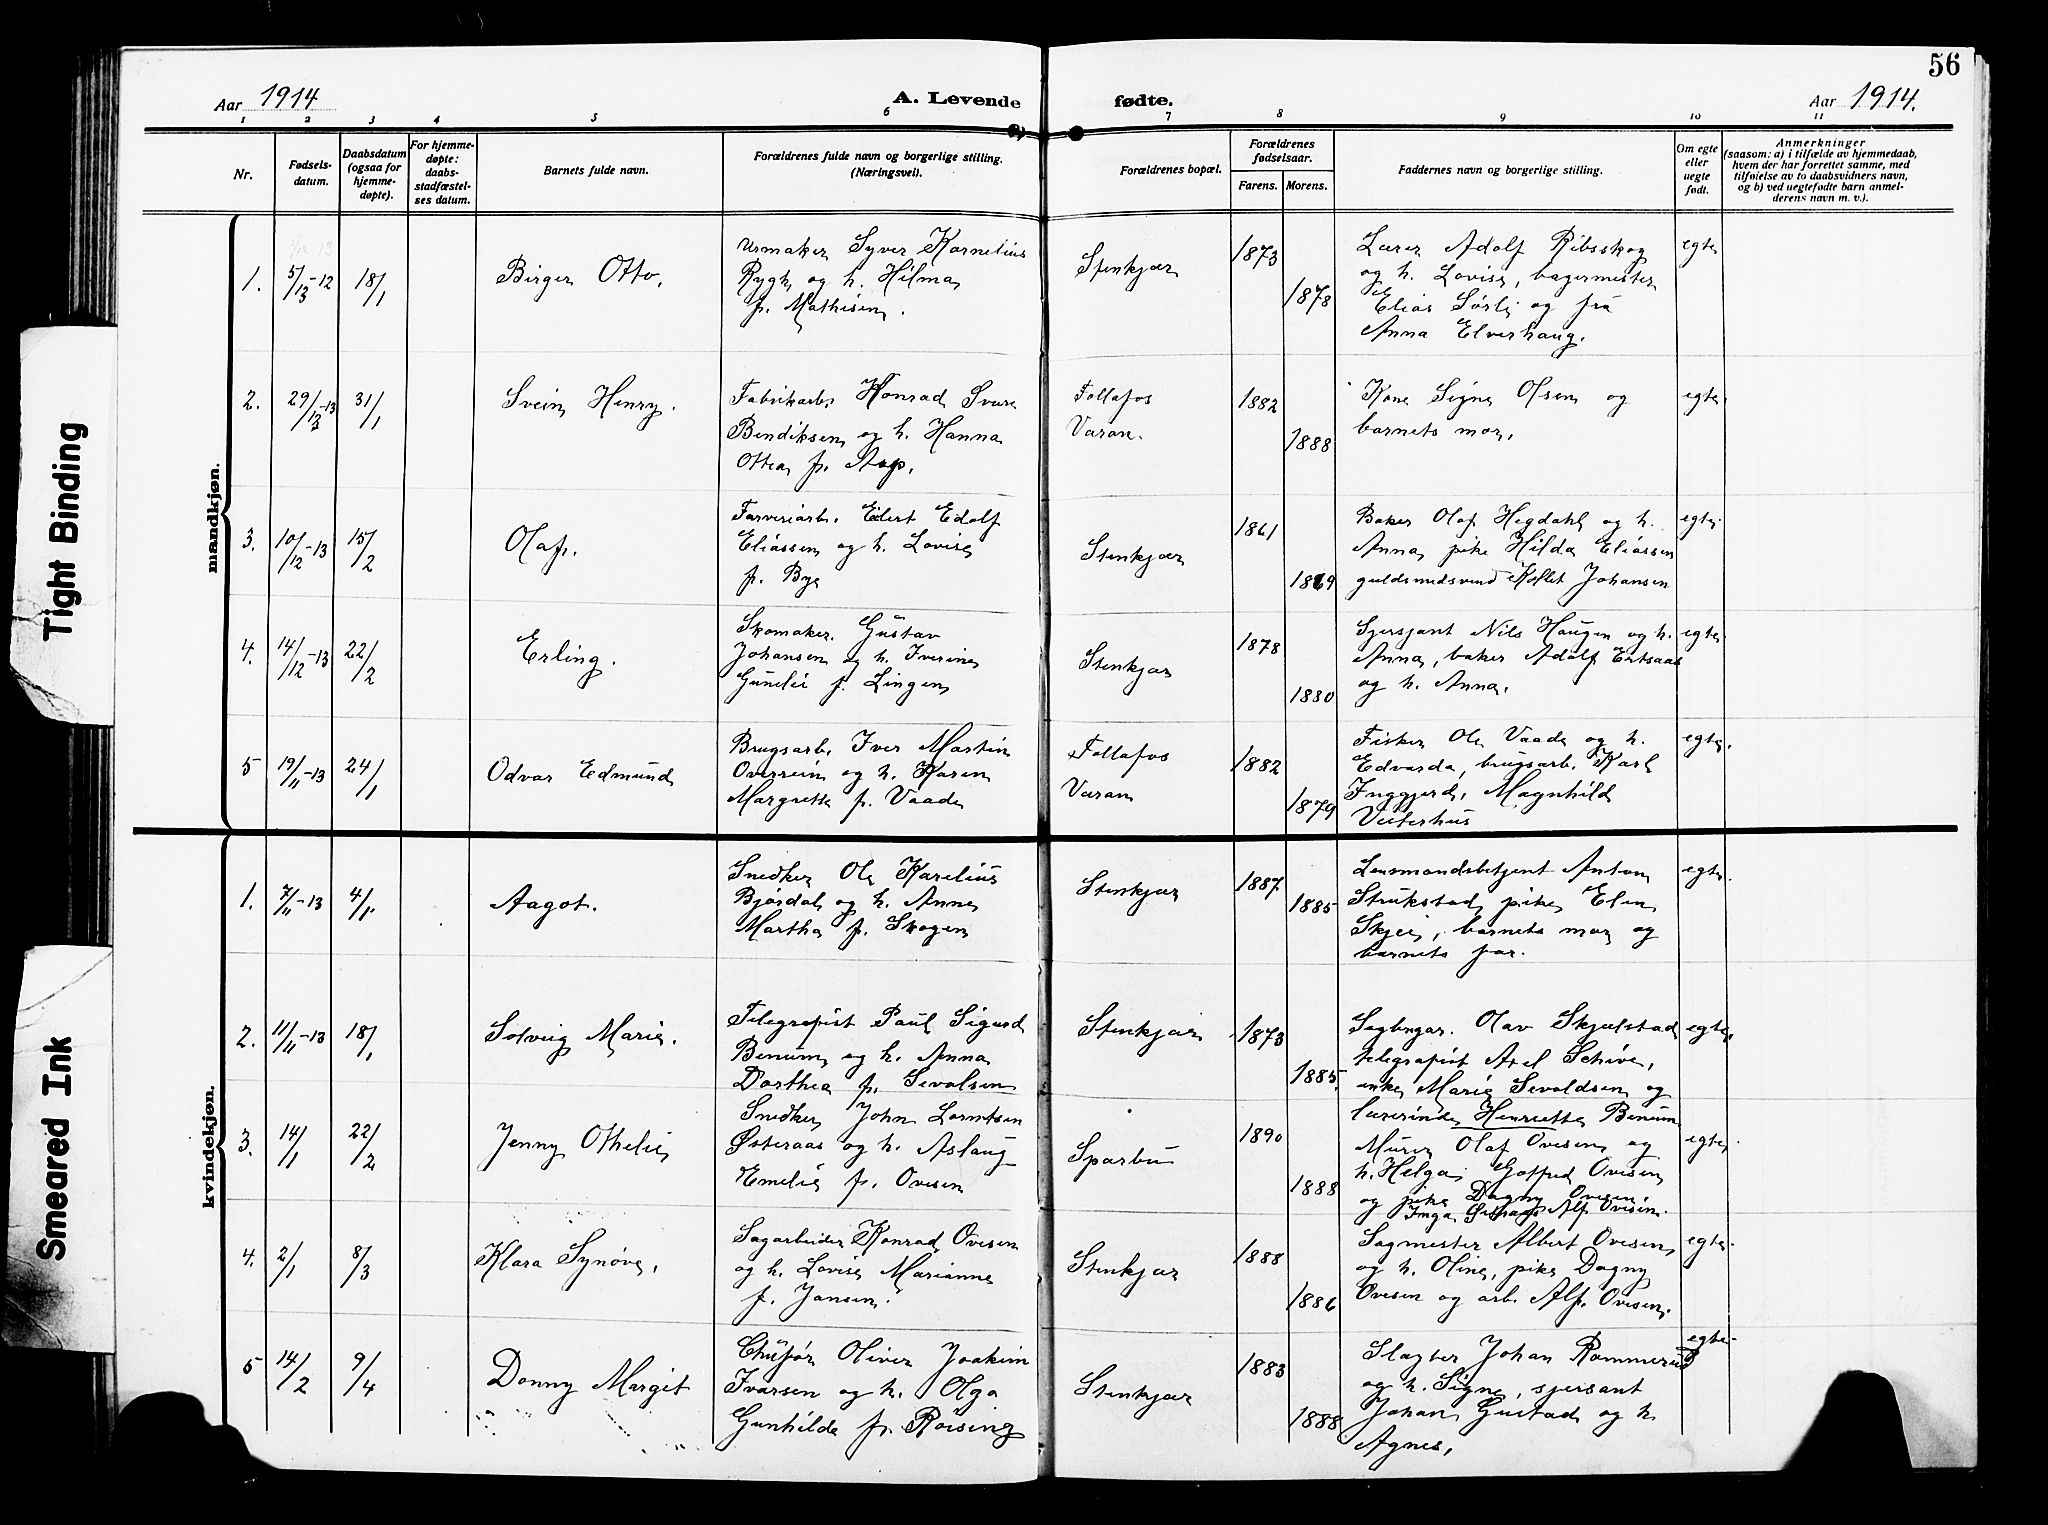 56
Aar 1914
A. Levende fødte.
Aar 1914.
1 2 3 4 5 6 7 8 9 10 11
Nr.
Fødsels-
datum.
Daabsdatum
(ogsaa for
hjemme-
døpte).
For hjemme-
døpte:
daabs-
stadfæstel-
ses datum.
Barnets fulde navn.
Forældrenes fulde navn og borgerlige stilling.
(Næringsvei).
Forældrenes bopæl.
Forældrenes
fødselsaar.
Farens. Morens.
Faddernes navn og borgerlige stilling.
Om egte
eller
uegte
født.
Anmerkninger
(saasom: a) i tilfælde av hjemmedaab,
hvem der har forrettet samme, med
tilføielse av to daabsvidners navn,
og b) ved uegtefødte barn anmel-
derens navn m. v.).
Tight Binding
Smeared Ink
mandkjøn.
1.
5/12-12
18/1
Birger Otto.
Urmaker Syver Kornelius
Rygh og h. Hilma
f. Mathisen.
Stenkjær
1873
1878
Lærer Adolf Ribsskog
og h. Lovise, bagermester
Elias Sørli og frå
Anna Elverhaug.
egte
2.
29/12-13
31/1
Svein Henry.
Fabrikarb. Konrad Sverre
Bendiksen og h. Hanna
Ottea f. Aap.
Follafos
Væran.
1882
1888
Kone Signe Olsen og
barnets mor.
egte
3.
10/12-13
15/2
Olaf.
Farveriarb. Eilert Edolf
Eliassen og h. Lovise
f. Bye
Stenkjær
1861
1869
Baker Olaf Hegdahl og h.
Anna, pike Hilda Eliassen
guldsmedsvend Johansen
egte.
4.
14/12-13
22/2
Erling.
Skomaker Gustav
Johansen og h. Iverine
Gunelie f. Lingen
Stenkjær
1878
1880
Sjersjant Nils Haugen og h.
Anna, baker Adolf Ertsaas
og h. Anna.
egte
5
19/11-13
24/1
Odvar Edmund
Brugsarb. Iver Martin
Overrein og h. Karen
Margrette f. Vaade
Follafos
Væran
1882
1879
Fisker Ole Vaade og h.
Edvarda, brugsarb. Karl
Inggjerd, Magnhild
Veiterhus
egte.
kvindekjøn.
1.
7/11-13
4/1
Aagot.
Snedker Ole Karelius
Bjørdal og h. Anne
Martha f. Skogen
Stenkjær
1887
1885
Lensmandsbetjent Anton
Strukstad, pike Elen
Skjei, barnets mor og
barnets far.
egte.
2.
11/11-13
18/1
Solveig Marie.
Telegrafist Paul Sigurd
Benum og h. Anna
Dorthea f. Sevalsen
Stenkjær
1873
1885.
Sagbrgar. Olav Skjelstad
telegrafist Axel Schive,
enke Marie Sevaldsen og
lærerinde Henriette Benum
egte.
3.
14/1
22/2
Jenny Othelie
Snedker John Lorntsen
Østeraas og h. Aslaug
Emelie f. Ovesen
Sparbu
1890
1888
Murer Olaf Ovesen og
h. Helga, Gotfred Ovesen
og pike Dagny Ovesen.
Inga Østeraas Alf Ovesen.
egte
4.
2/1
8/3
Klara Synøve,
Sagarbeider Konrad Ovesen
og h. Lovise Marianne
f. Jansen.
Stenkjær
1888
1886
Sagmester Albert Ovesen,
og h. Oline, pike Dagny
Ovesen og arb. Alf. Ovesen.
egte
5
14/2
9/4
Donny Margit
Chufør Oliver Joakim
Ivarsen og h. Olga
Gunhilde f. Røising
Stenkjær
1883
1888
Slagter Johan Rommerud
og h. Signe, sjersant
Johan Gustad og h.
Agnes,
egte